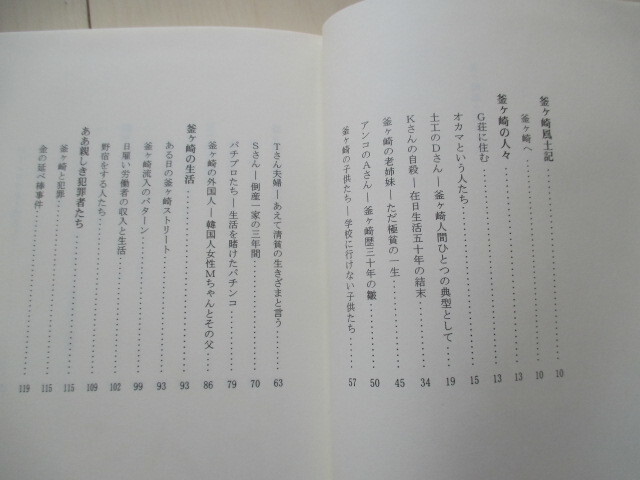 釜ヶ崎風土記 10
釜ヶ崎へ 10
釜ヶ崎の人々 13
G荘に住む 13
オカマという人たち 15
土工のDさん―釜ヶ崎人間ひとつの典型として 19
Kさんの自殺―在日生活五十年の結末 34
釜ヶ崎の老姉妹―ただ極貧の一生 45
アンコのAさん―釜ヶ崎歴三十年の皺 50
釜ヶ崎の子供たち―学校に行けない子供たち 57
Tさん夫婦―あえて清貧の生きざまと言う 63
Sさん―倒産一家の三年間 70
パチプロたち―生活を賭けたパチンコ 79
釜ヶ崎の外国人―韓国人女性Mちゃんとその父 86
釜ヶ崎の生活 93
ある日の釜ヶ崎ストリート 93
釜ヶ崎流入のパターン 99
日雇い労働者の収入と生活 102
野宿をする人たち 109
ああ親しき犯罪者たち 115
釜ヶ崎と犯罪 115
金の延べ棒事件 119